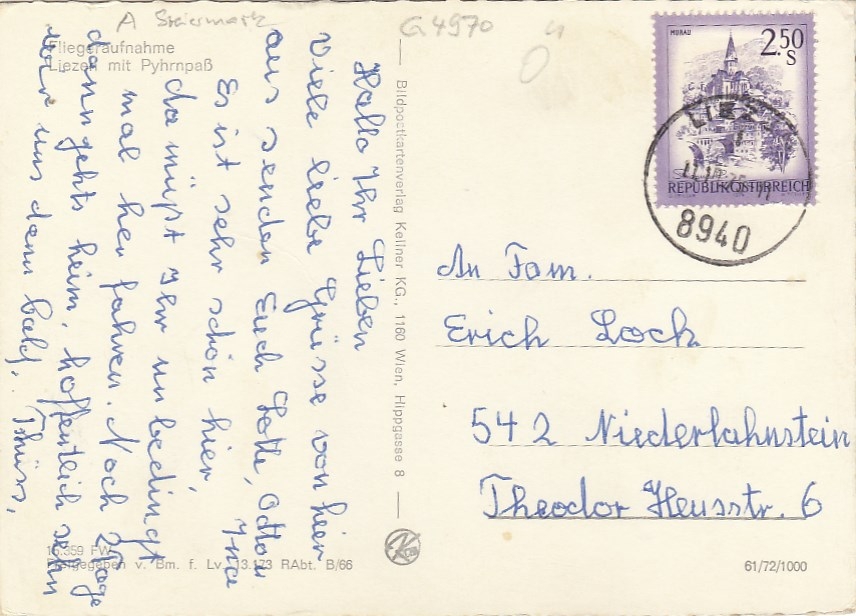 A Steiermark
G4970
Fliegeraufnahme
Liezen mit Pyhrnpaß
Hallo Ihr Lieben
Viele liebe Grüsse von hier
aus senden Euch Lotte, Otto u
Ina
Es ist sehr schön hier,
da müßt Ihr unbedingt
mal her fahren. Noch 2 Tage
dann gehts heim, hoffentlich sehn
wir uns dann bald. Thüss,
16.359 FW
Freigegeben v. Bm. f. Lv. 13.173 RAbt. B/66
Bildpostkartenverlag Kellner KG., 1160 Wien, Hippgasse 8
MURAU
2.50
S
REPUBLIK ÖSTERREICH
8940
An Fam.
Erich Lock
542 Niederlahnstein
Theodor Heusstr. 6
61/72/1000